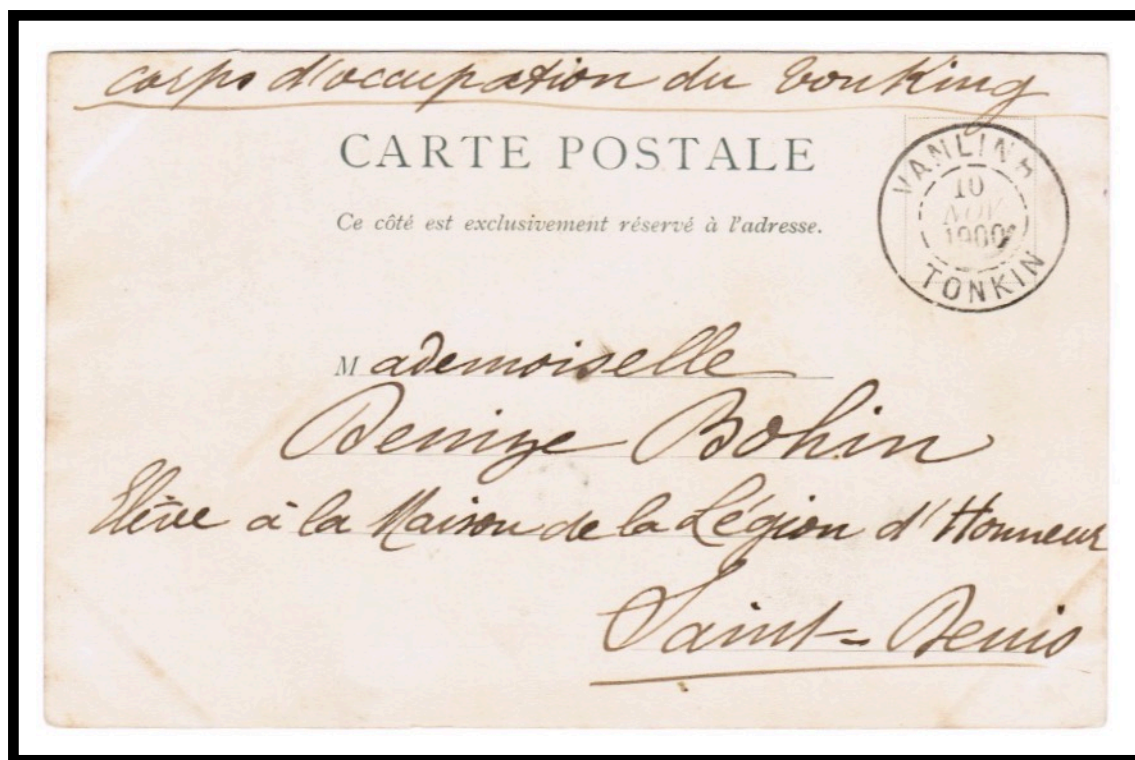 corps d'occupation du tonKing
CARTE POSTALE
Ce côté est exclusivement réservé à l'adresse.
VANLINH
10
1900
TONKIN
Mademoiselle
Denize Bohin
Elève à la Maison de la Légion d'Honneur
Saint-Denis